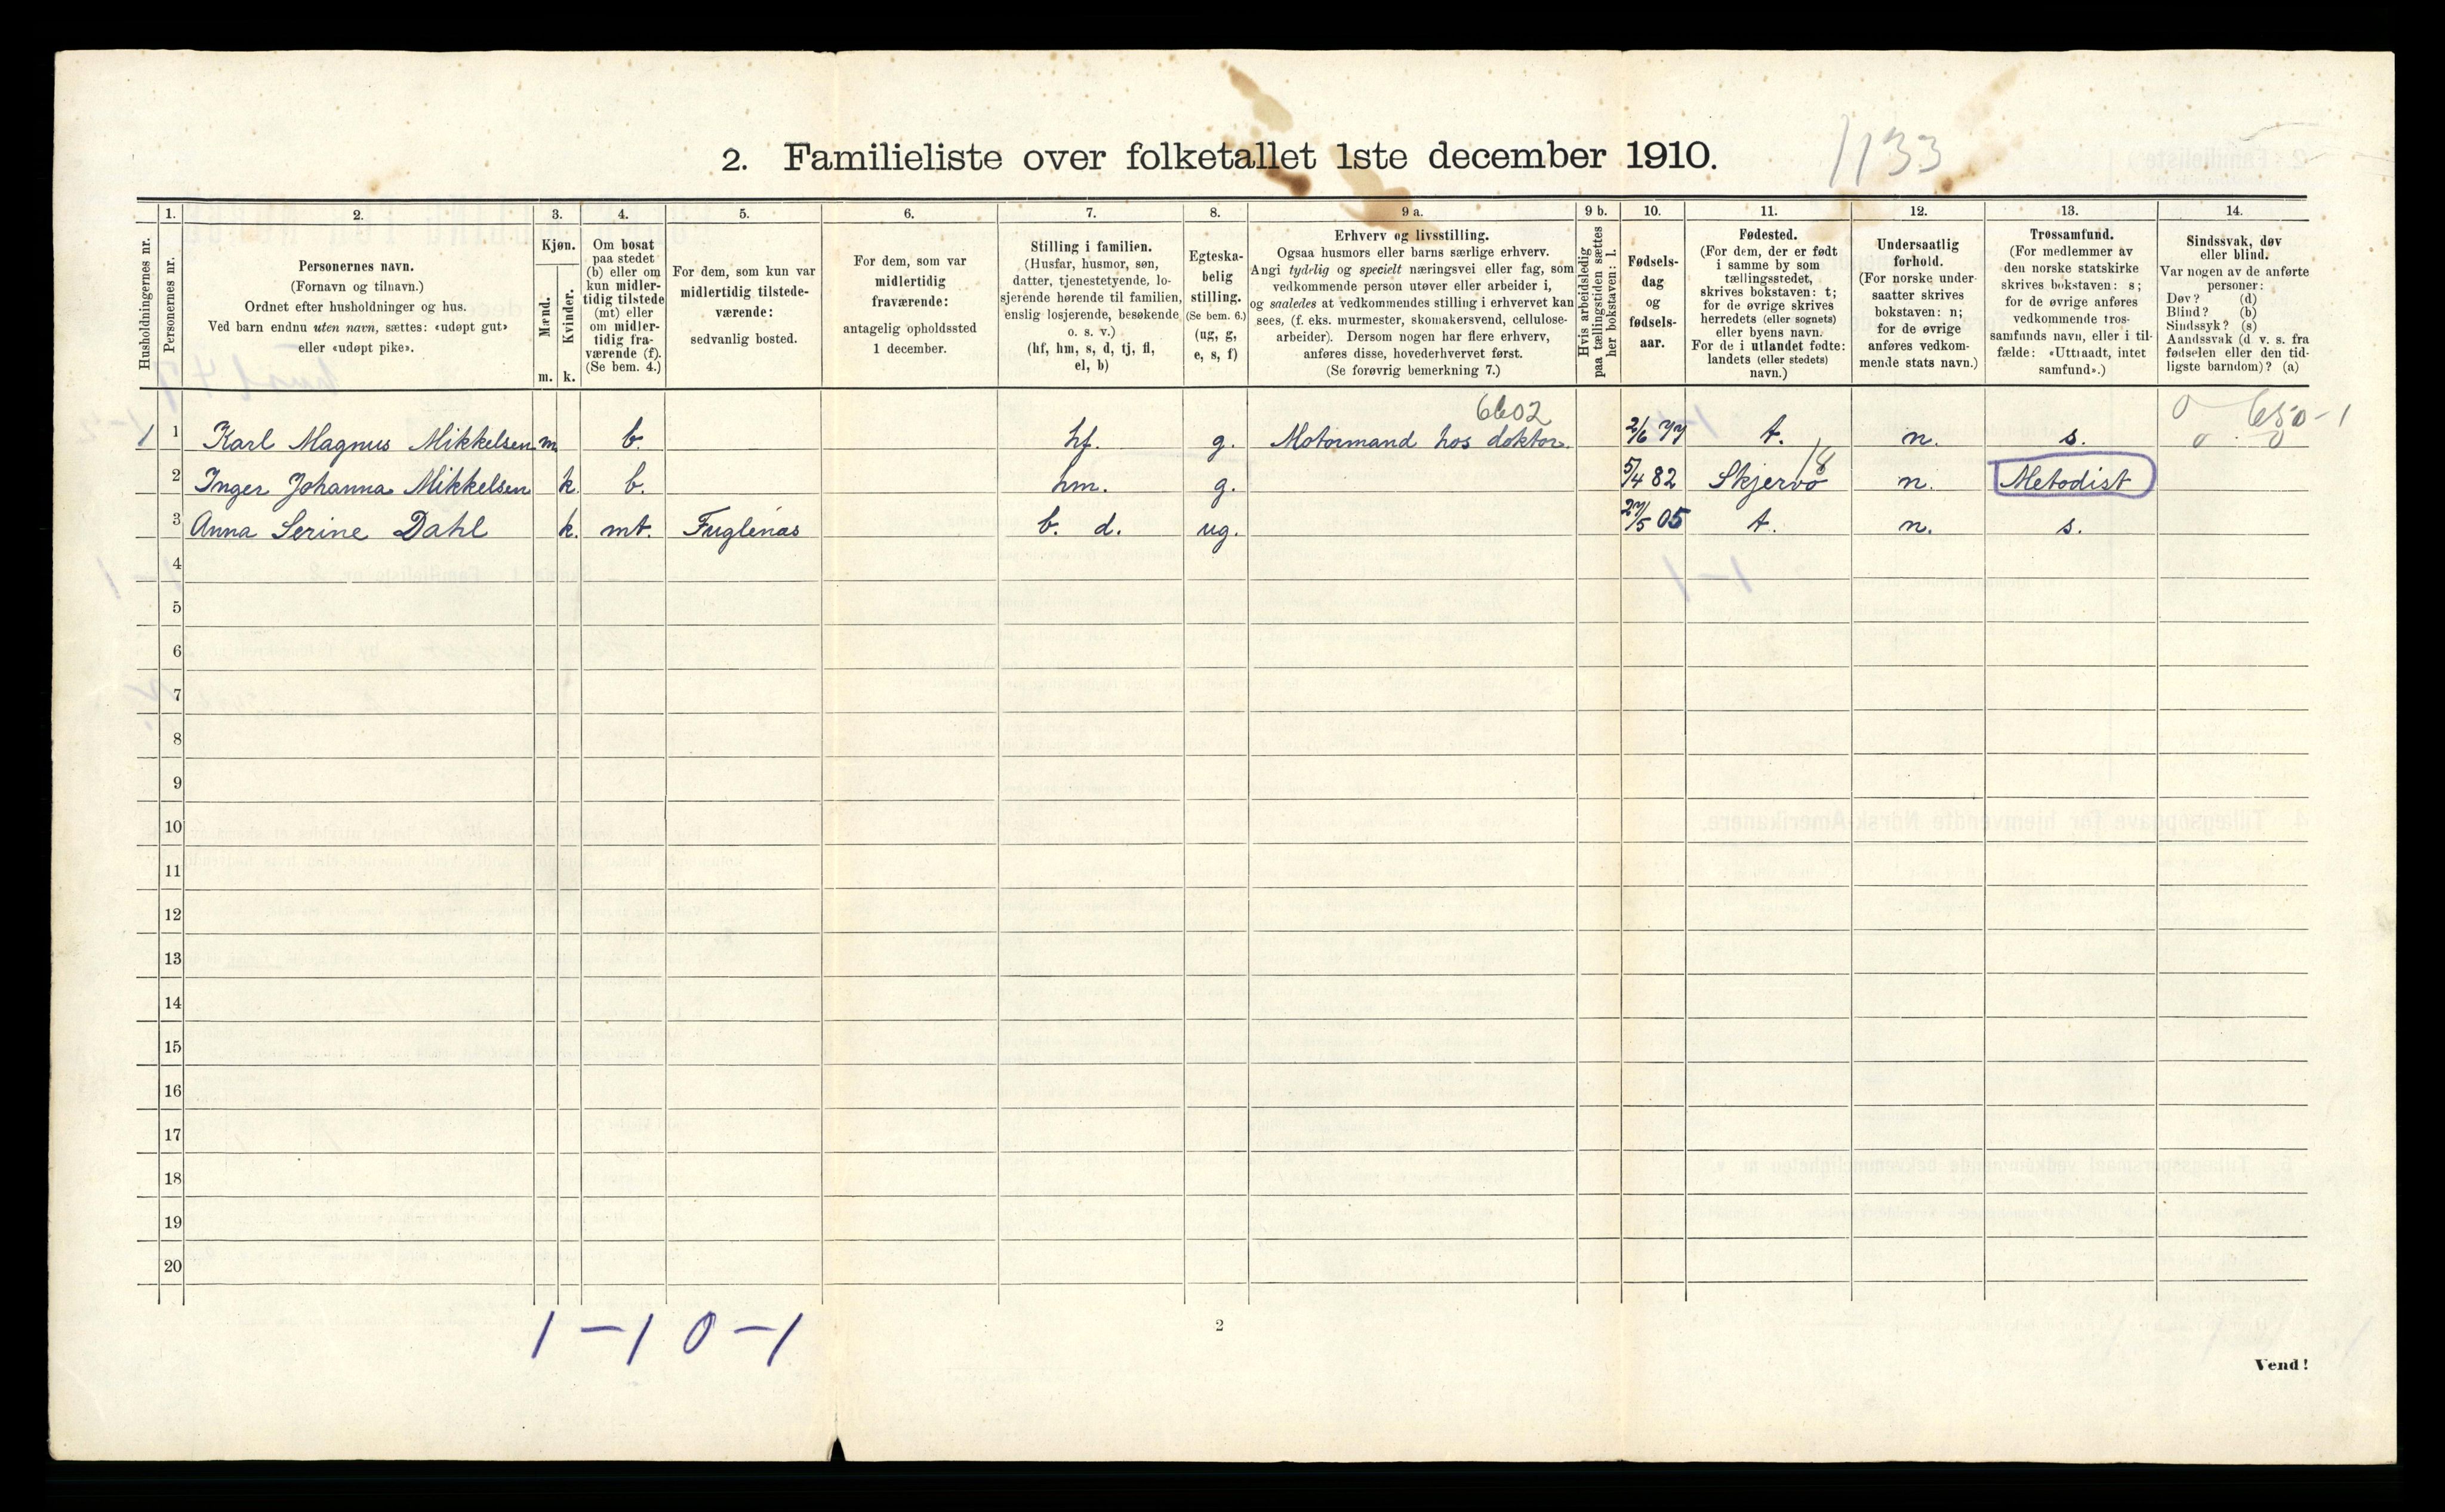 2. Familieliste over folketallet 1ste december 1910.
1133
Husholdningernes nr.
1.
Personernes nr.
2.
Personernes navn.
(Fornavn og tilnavn.)
Ordnet efter husholdninger og hus.
Ved barn endnu uten navn, sættes: «udøpt gut»
eller «udøpt pike».
3.
Kjøn.
Mænd.
Kvinder.
m. k.
4.
Om bosat
paa stedet
(b) eller om
kun midler-
tidig tilstede
(mt) eller
om midler-
tidig fra-
værende (f).
(Se bem. 4.)
5.
For dem, som kun var
midlertidig tilstede-
værende:
sedvanlig bosted.
6.
For dem, som var
midlertidig
fraværende:
antagelig opholdssted
1 december.
7.
Stilling i familien.
(Husfar, husmor, søn,
datter, tjenestetyende, lo-
sjerende hørende til familien,
enslig losjerende, besøkende
o. s. v.)
(hf, hm, s, d, tj, fl,
el, b)
8.
Egteska-
belig
stilling.
(Se bem. 6.)
(ug, g,
e, s, f)
9 a.
Erhverv og livsstilling.
Ogsaa husmors eller barns særlige erhverv.
Angi tydelig og specielt næringsvei eller fag, som
vedkommende person utøver eller arbeider i,
og saaledes at vedkommendes stilling i erhvervet kan
sees, (f. eks. murmester, skomakersvend, cellulose-
arbeider). Dersom nogen har flere erhverv,
anføres disse, hovederhvervet først.
(Se forøvrig bemerkning 7.)
9 b.
Hvis arbeidsledig
paa tællingstiden sættes
her bokstaven: l.
10.
Fødsels-
dag
og
fødsels-
aar.
11.
Fødested.
(For dem, der er født
i samme by som
tællingsstedet,
skrives bokstaven: t;
for de øvrige skrives
herredets (eller sognets)
eller byens navn.
For de i utlandet fødte:
landets (eller stedets)
navn.)
12.
Undersaatlig
forhold.
(For norske under-
saatter skrives
bokstaven: n;
for de øvrige
anføres vedkom-
mende stats navn.)
13.
Trossamfund.
(For medlemmer av
den norske statskirke
skrives bokstaven: s;
for de øvrige anføres
vedkommende tros-
samfunds navn, eller i til-
fælde: «Uttraadt, intet
samfund».)
14.
Sindssvak, døv
eller blind.
Var nogen av de anførte
personer:
Døv? (d)
Blind? (b)
Sindssyk? (s)
Aandssvak (d. v. s. fra
fødselen eller den tid-
ligste barndom)? (a)
6602
1 1 Karl Magnus Mikkelsen m. b. hf. g. Motormand hos doktor. 2/6 77 t. n. s.
2 Inger Johanna Mikkelsen k. b. hm. g. 5/4 82 Skjervø n. Metodist
3 Anna Serine Dahl k. mt. Fuglenæs b. d. ug. 27/5 05 t. n. s.
4
5
6
7
8
9
10
11
12
13
14
15
16
17
18
19
20
1 – 1 0 – 1
2
Vend!